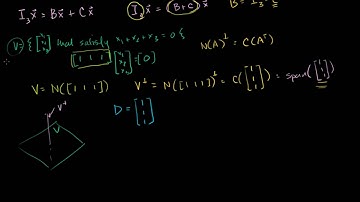 I₃x⃗ = Bx⃗ + Cx⃗
I₃x⃗ = (B+C)x⃗
B = I₃ - C
V = { [x₁ x₂ x₃] that satisfy x₁+x₂+x₃ = 0 }
[1 1 1] [x₁ x₂ x₃] = [0]
N(A)^⊥ = C(Aᵀ)
V = N([1 1 1])
V^⊥ = N([1 1 1])^⊥ = C([1 1 1]) = span([1 1 1])
V^⊥
V
D = [1 1 1]